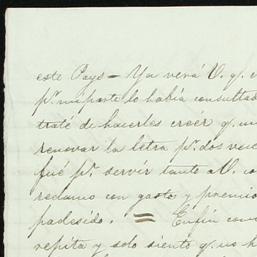 este Pays — Ya verá V. q.
pr. mi parte lo había consultad
traté de hacerles creér q.
renovar la letra pr. dos vec
fué pr. servir tanto a V. co
reclamo con gasto y premio
padesido. = Enfin com
repita y solo siento q. no h